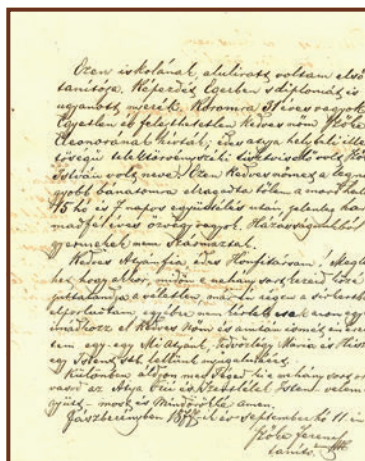 Ezen iskolának, alulirott voltam első
tanítója. Képezdét Egerben s diplomát is
ugyanott nyerék. Koromra 31 éves vagyok.
Egyetlen és felejthetetlen kedves nőm Kóka
Eleonorának hívták; édes atyja helybéli ille-
tőségű telektörvényszéki tisztviselő volt,
István volt neve. Ezen kedves nőmet a legna-
gyobb bánatomra elragadta tőlem a mord halál
15 hó és 7 napos együttélés után, jelenleg har-
madfél éves özvegy vagyok. Házasságunkból
gyermekek nem származtak.
Kedves Atyámfia, édes Honfitársam! Megle-
het, hogy akkor, midőn e nehány sort kezeid közé
juttatandja a véletlen, már én régen a sirkertben
elporlottam egyébre nem kérlek csak azon egy
imádkozz el kedves Nőm és azután ismét én érettem
egy-egy Mi Atyánk, Üdvözlégy Mária és Hiszek
egy Istent, stb lelkünk nyugalmáért.
Különben áldjon meg Téged ki e nehány sort ol-
vasod az Atya Fiú és Szentlélek Isten velem
együtt - most és Mindörökké amen.
Jászberényben 1877-ik év september hó 11 én
Kóka Ferenc
tanító